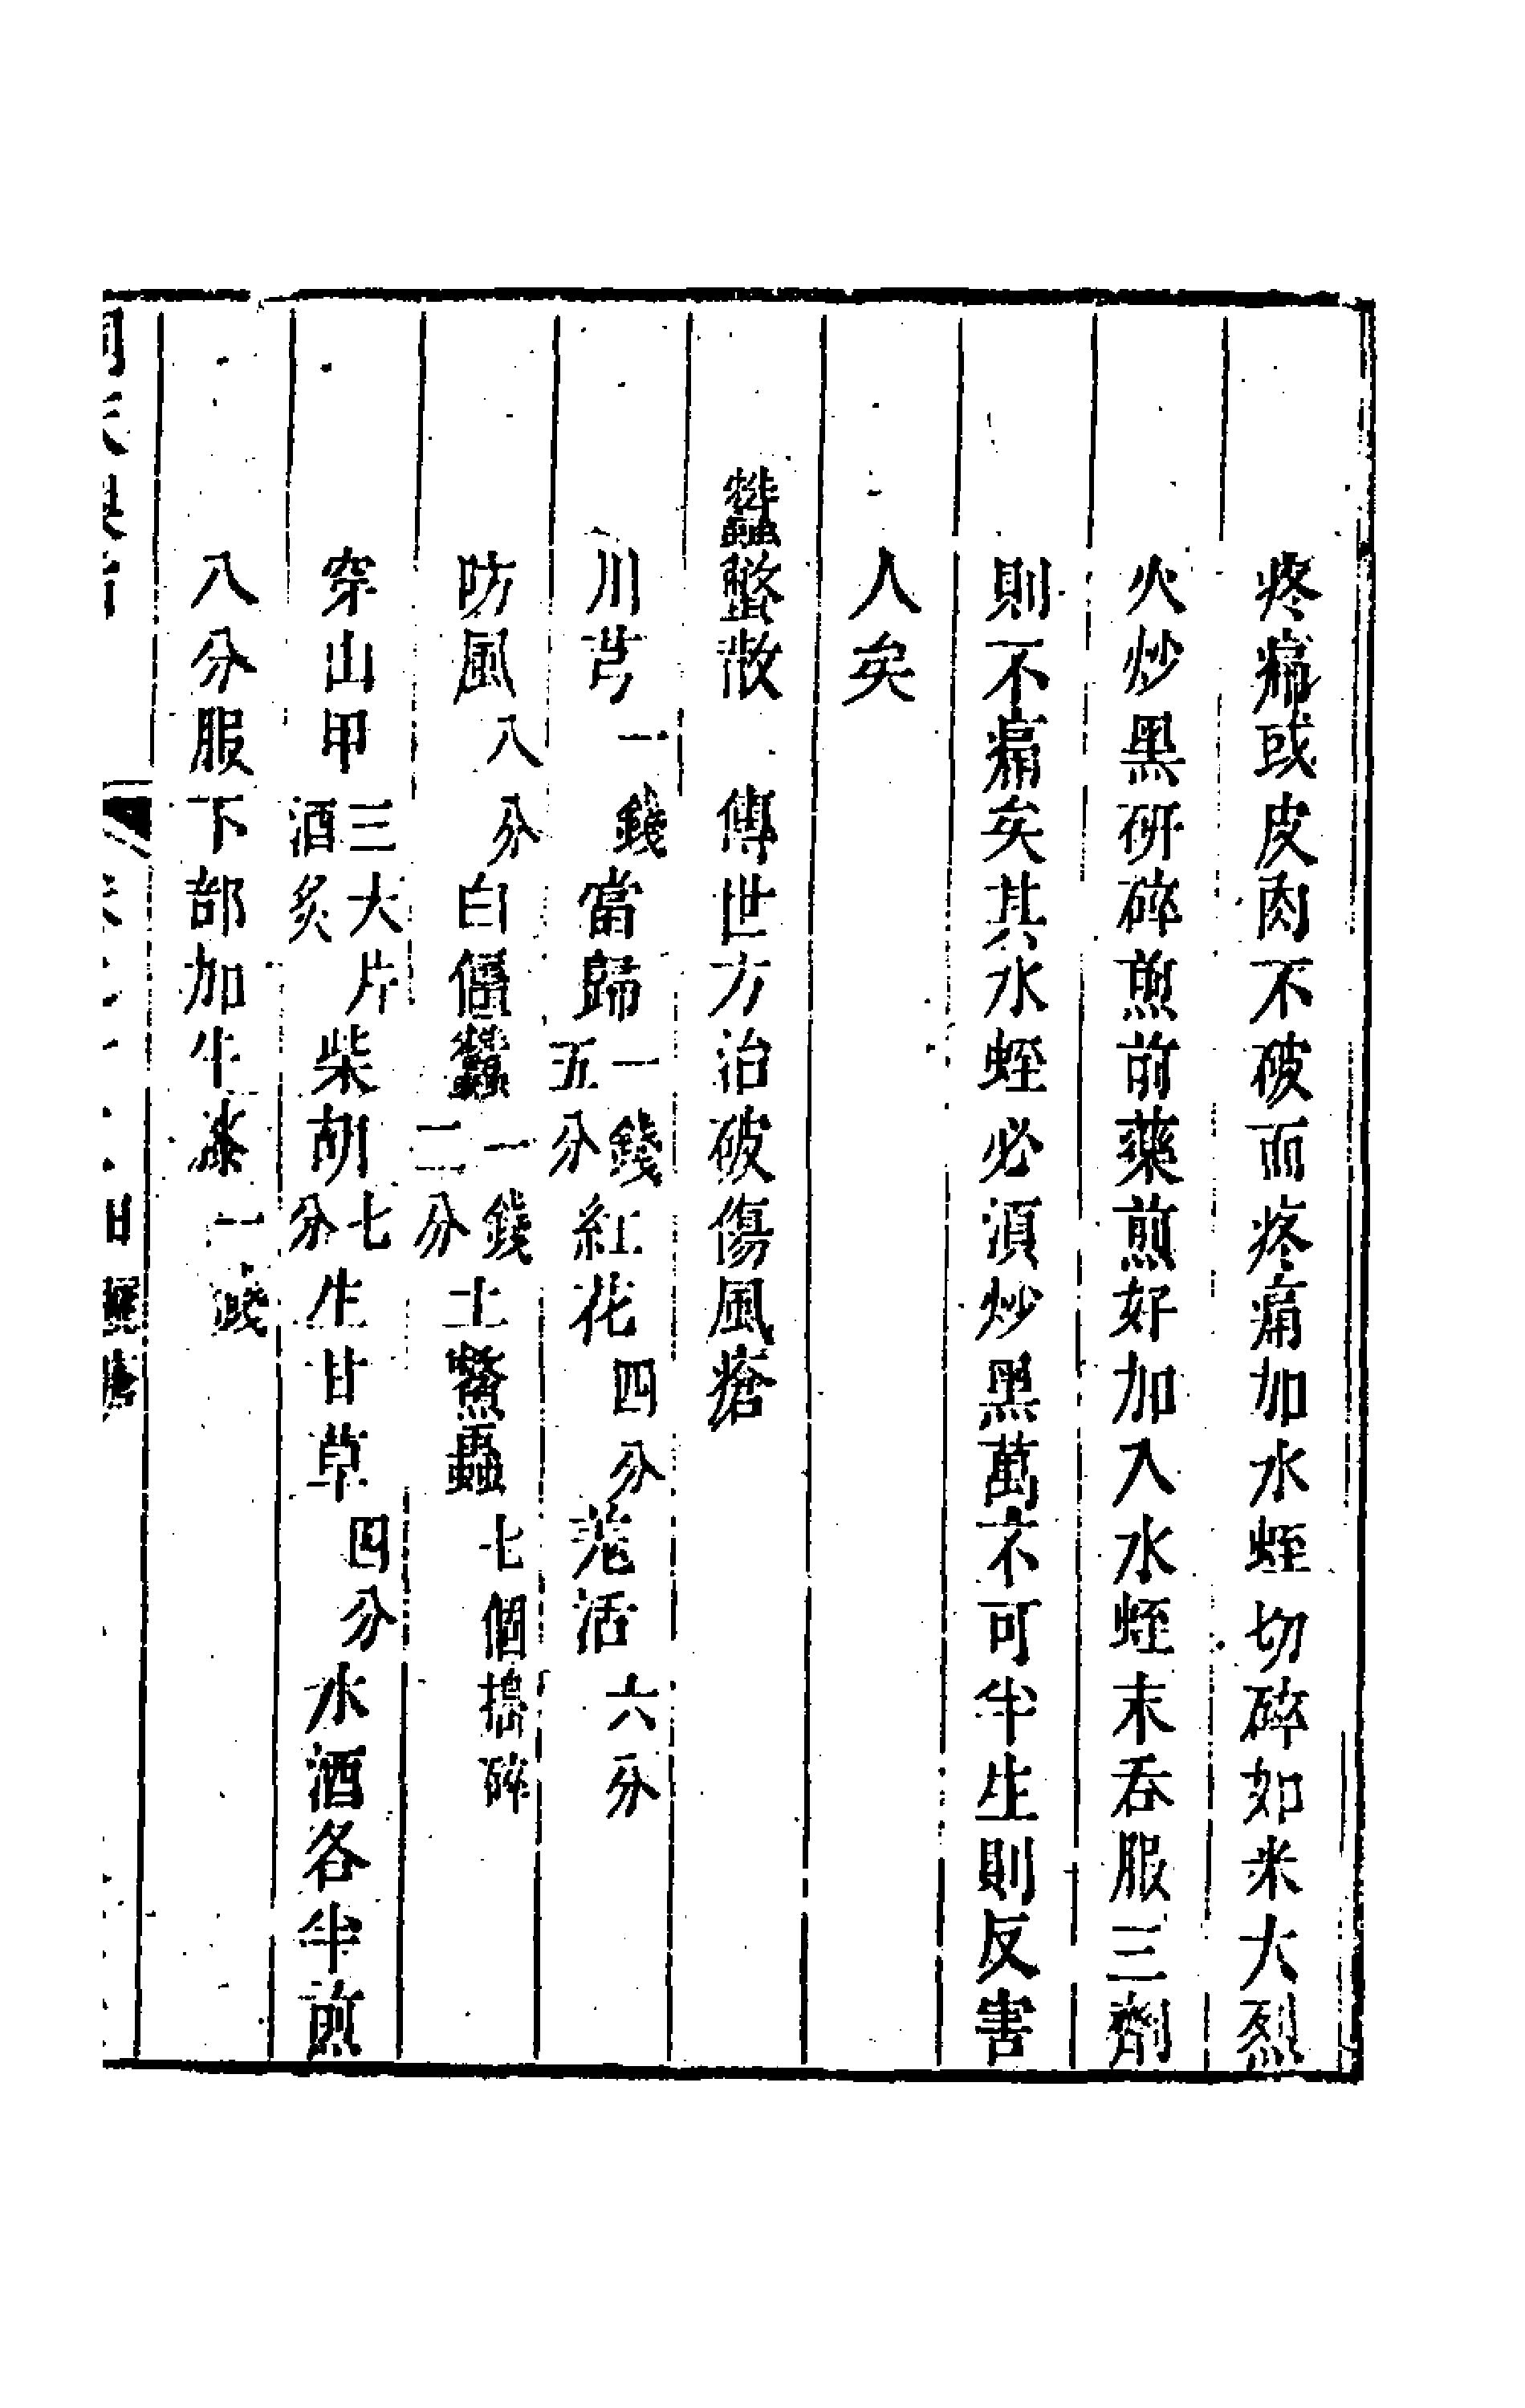 疼痛或皮肉不破而疼痛加水蛭切碎如米大烈
火炒黑研碎煎前藥煎好加入水蛭末吞服三劑
則不痛矣其水蛭必須炒黑萬不可半生則反害
人矣
蠭螫散 傳世方治破傷風瘡
川芎一錢當歸一錢五分紅花四分羌活六分
防風八分白僵蠶一錢二分土鱉蟲七個搗碎
穿山甲三大片酒炙柴胡七分生甘草四分水酒各半煎
八分服下部加牛膝一錢